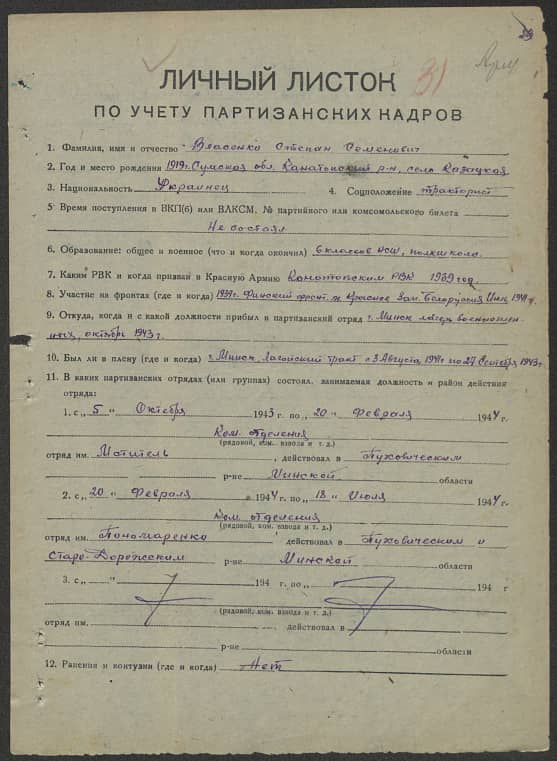 31
ЛИЧНЫЙ ЛИСТОК
ПО УЧЕТУ ПАРТИЗАНСКИХ КАДРОВ
1. Фамилия, имя и отчество Власенко Степан Семенович
2. Год и место рождения 1919г. Сумская обл. р-н, село Казацкое
3. Национальность Украинец 4. Соцположение тракторист
5 Время поступления в ВКП(б) или ВЛКСМ, № партийного или комсомольского билета
Не состоял
6. Образование: общее и военное (что и когда окончил) 6 классов НСШ, полкшкола.
7. Каким РВК и когда призван в Красную Армию Конотопским РВК 1939 год
8. Участие на фронтах (где и когда) 1939г. Финский фронт Зап. Белоруссия 1941г.
9. Откуда, когда и с какой должности прибыл в партизанский отряд г. Минск лагерь военноплен-
ных, октябрь 1943г.
10. Был ли в плену (где и когда) г. Минск, тракт с 3 Августа 1941г по 27 Сентября 1943г.
11. В каких партизанских отрядах (или группах) состоял, занимаемая должность и район действия
отряда:
1. с „ 5 " Октября 1943 г. по „ 20 " Февраля 1944 г.
Ком. отделения
(рядовой, ком. взвода и т. д.)
отряд им. Мститель, действовал в Пуховическим
р-не Минской области
2. с „ 20 " Февраля 1944 г. по „ 18 " Июля 1944 г.
Ком. отделения
(рядовой, ком. взвода и т. д.)
отряд им. Пономаренко действовал в Пуховическим и
Старо-Дорожским р-не Минской области
3. с „ " 194 г. по „ " 194 г
(рядовой, ком. взвода и т. д.)
отряд им. действовал в
р-не области
12. Ранения и контузии (где и когда) Нет